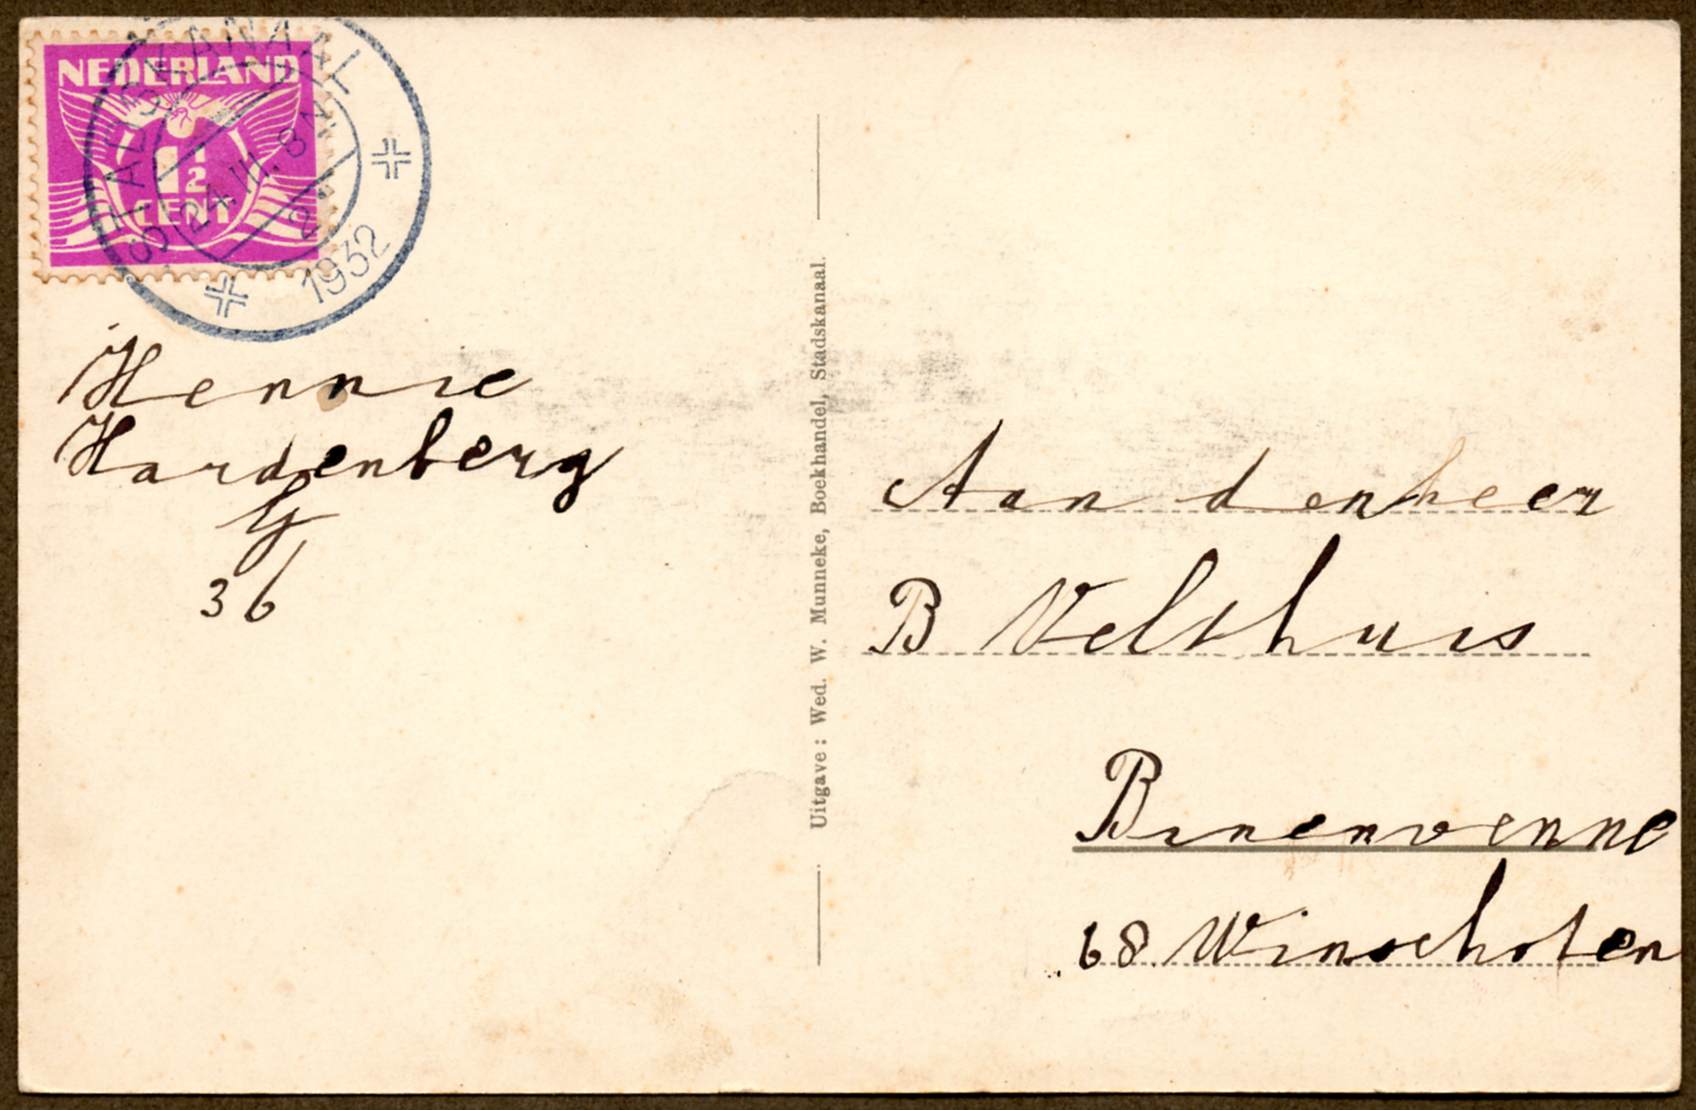 NEDERLAND
1½
CENT
STADSKANAAL
24.III. 8 N
1932
Hennie
Hardenberg
G
36
Uitgave: Wed. W. Munneke, Boekhandel, Stadskanaal.
Aan den heer
B Velthuis
Binenvenne
68 Winschoten